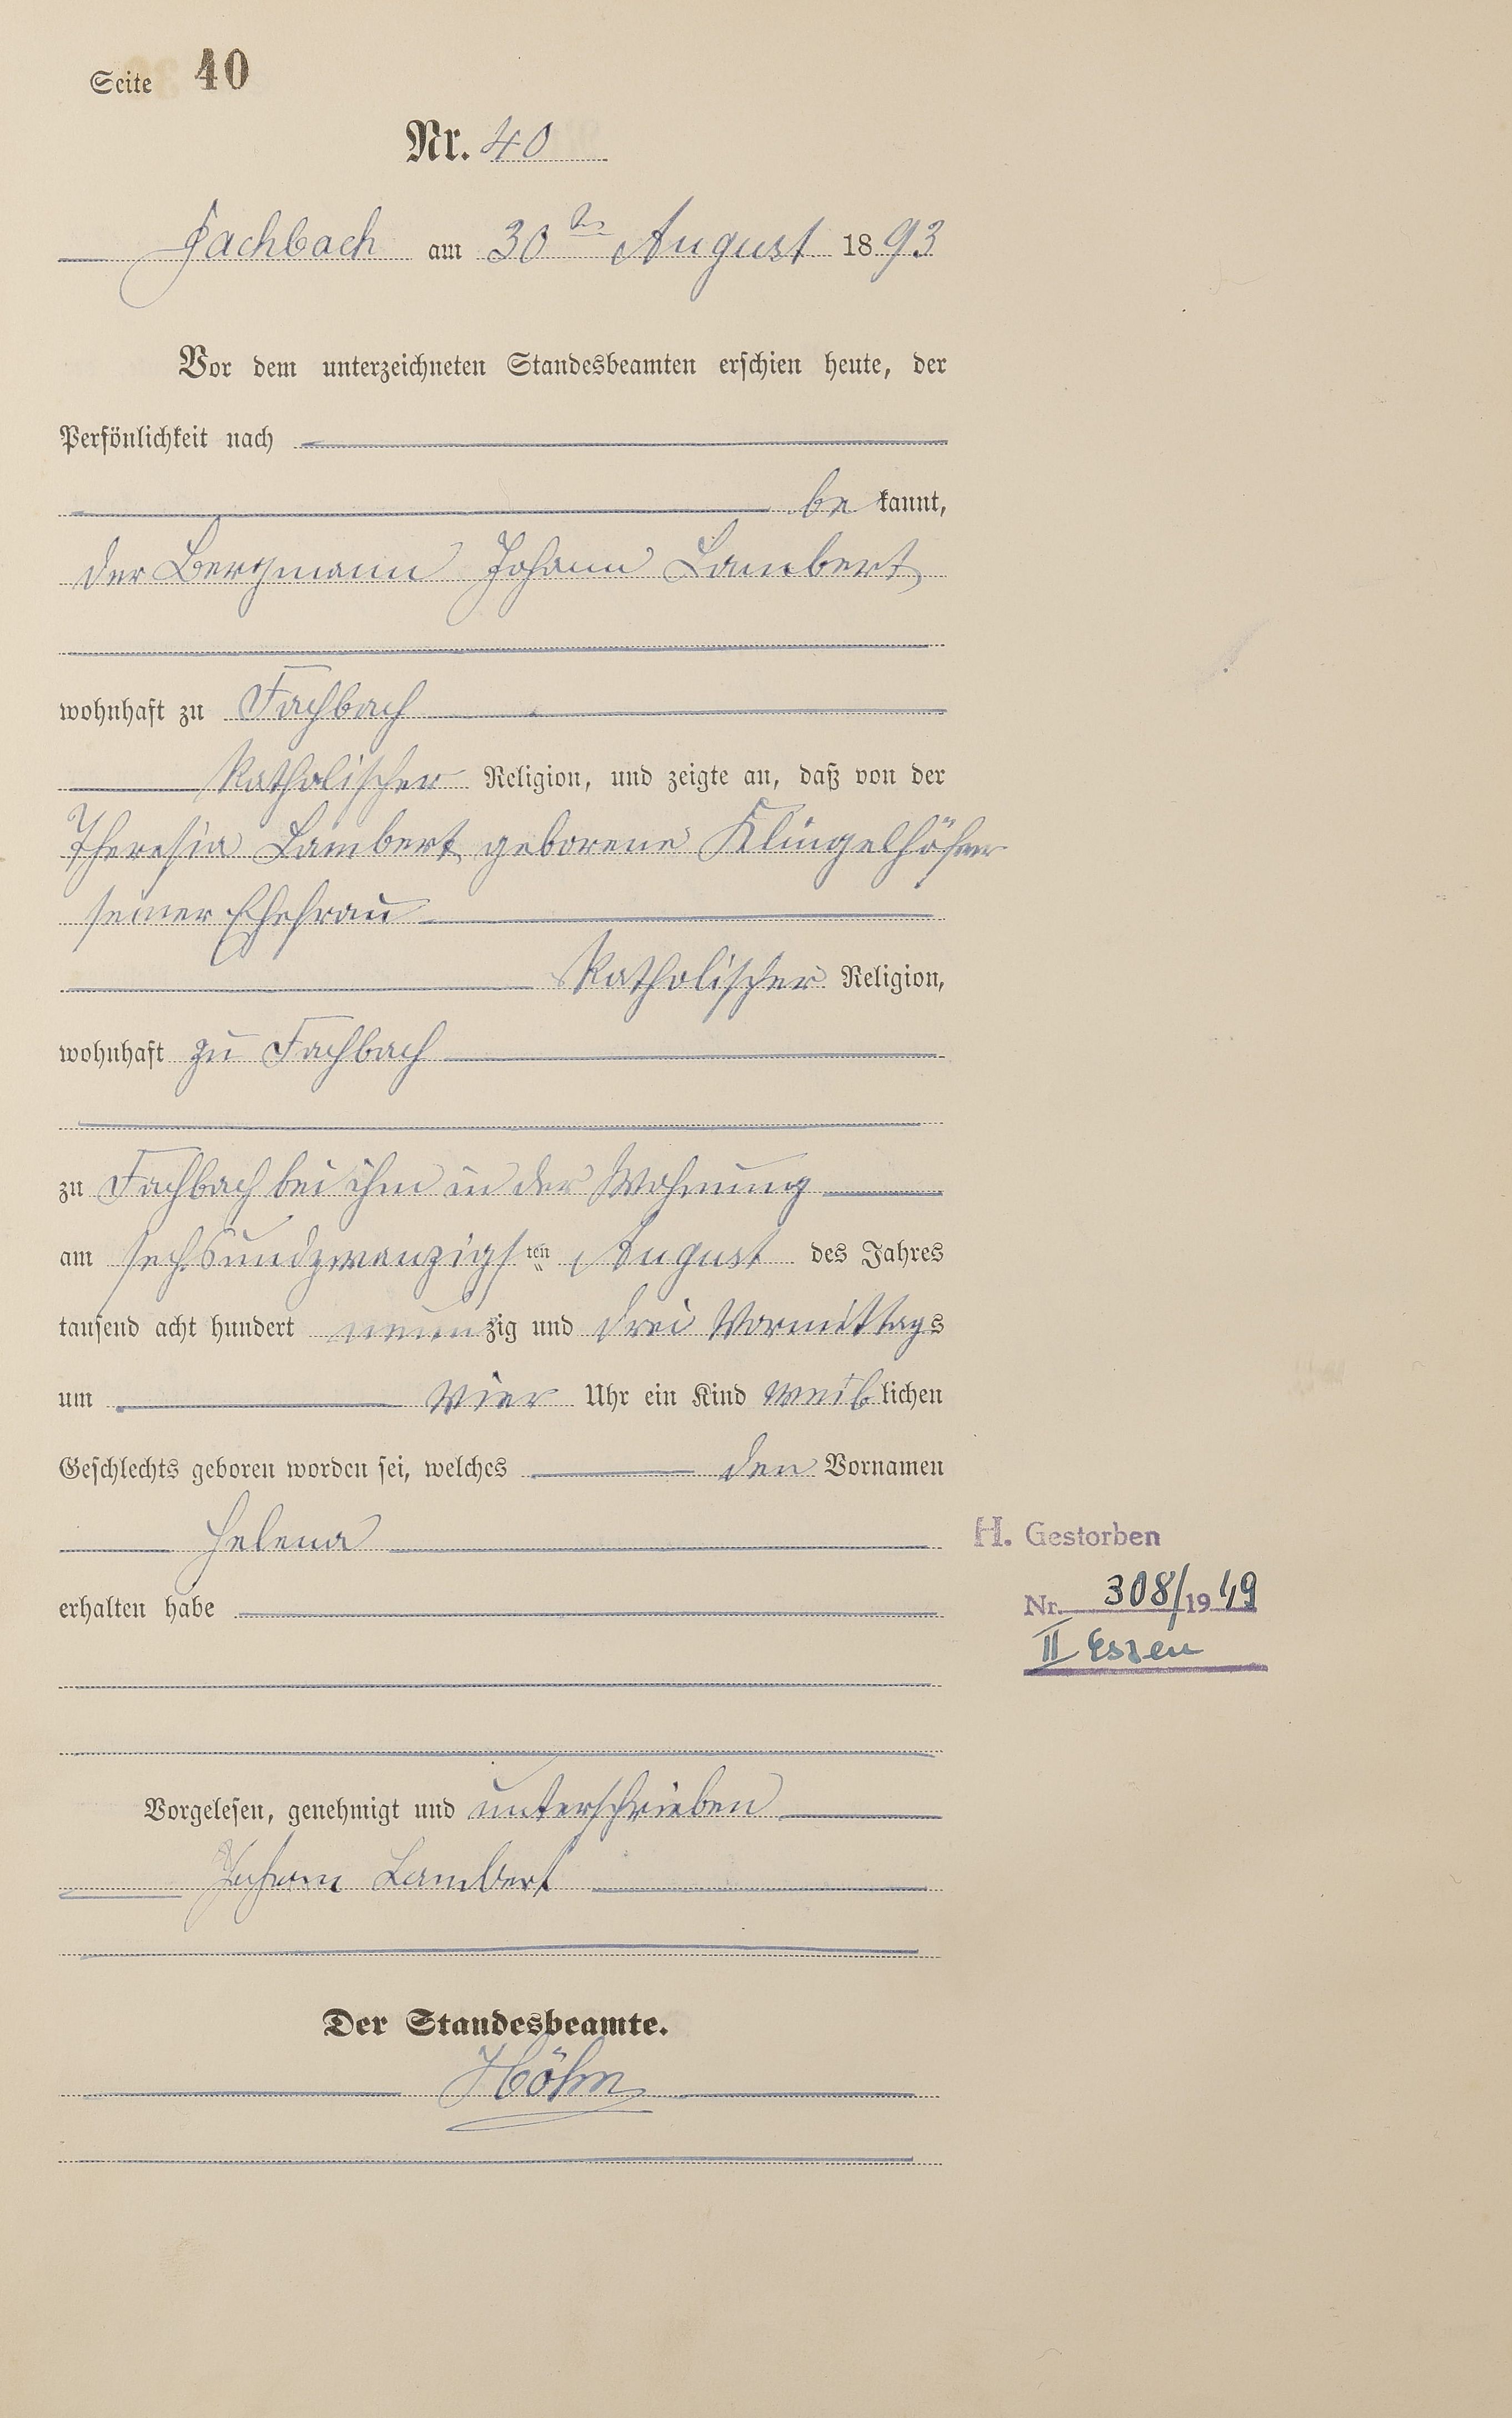 Seite 40
Nr. 40
Fachbach am 30ten August 1893
Vor dem unterzeichneten Standesbeamten erschien heute, der
Persönlichkeit nach
bekannt,
der Bergmann Johann Lambert
wohnhaft zu Fachbach
katholischer Religion, und zeigte an, daß von der
Theresia Lambert geborene Klingelhöfer
seiner Ehefrau
katholischer Religion,
wohnhaft zu Fachbach
zu Fachbach bei ihm in der Wohnung
am sechsundzwanzigsten August des Jahres
tausend acht hundert neunzig und drei Vormittags
um vier Uhr ein Kind weiblichen
Geschlechts geboren worden sei, welches den Vornamen
Helena
erhalten habe
H. Gestorben
Nr. 308/1949
II Essen
Vorgelesen, genehmigt und unterschrieben
Johann Lambert
Der Standesbeamte.
Höhn